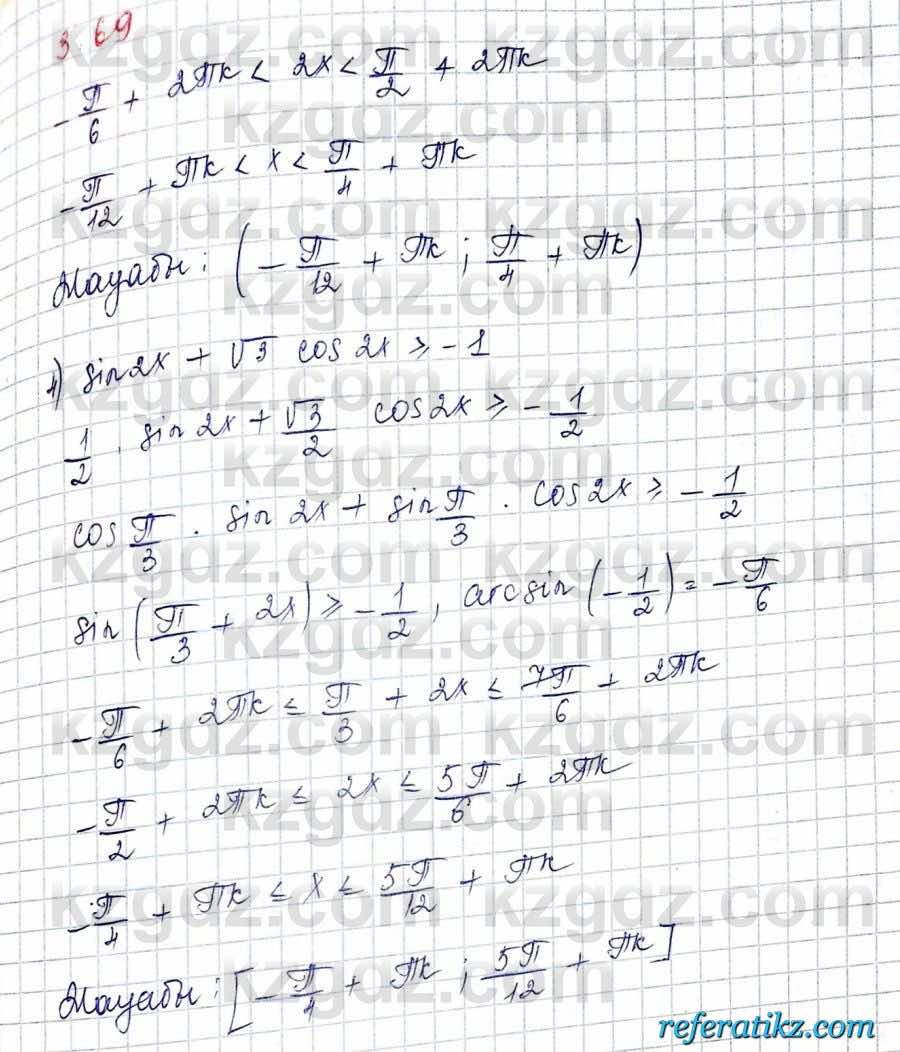 3.69
-π/6 + 2πk < 2x < π/2 + 2πk
-π/12 + πk < x < π/4 + πk
Жауабы: (-π/12 + πk; π/4 + πk)
4) sin2x + √3 cos2x ≥ -1
1/2 · sin2x + √3/2 cos2x ≥ -1/2
cos π/3 · sin2x + sin π/3 · cos2x ≥ -1/2
sin(π/3 + 2x) ≥ -1/2, arcsin(-1/2) = -π/6
-π/6 + 2πk ≤ π/3 + 2x ≤ 7π/6 + 2πk
-π/2 + 2πk ≤ 2x ≤ 5π/6 + 2πk
-π/4 + πk ≤ x ≤ 5π/12 + πk
Жауабы: [-π/4 + πk; 5π/12 + πk]
referatikz.com